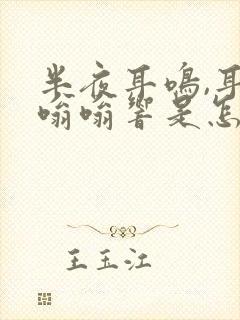 半夜耳鸣,耳
嗡嗡响是怎
王玉江